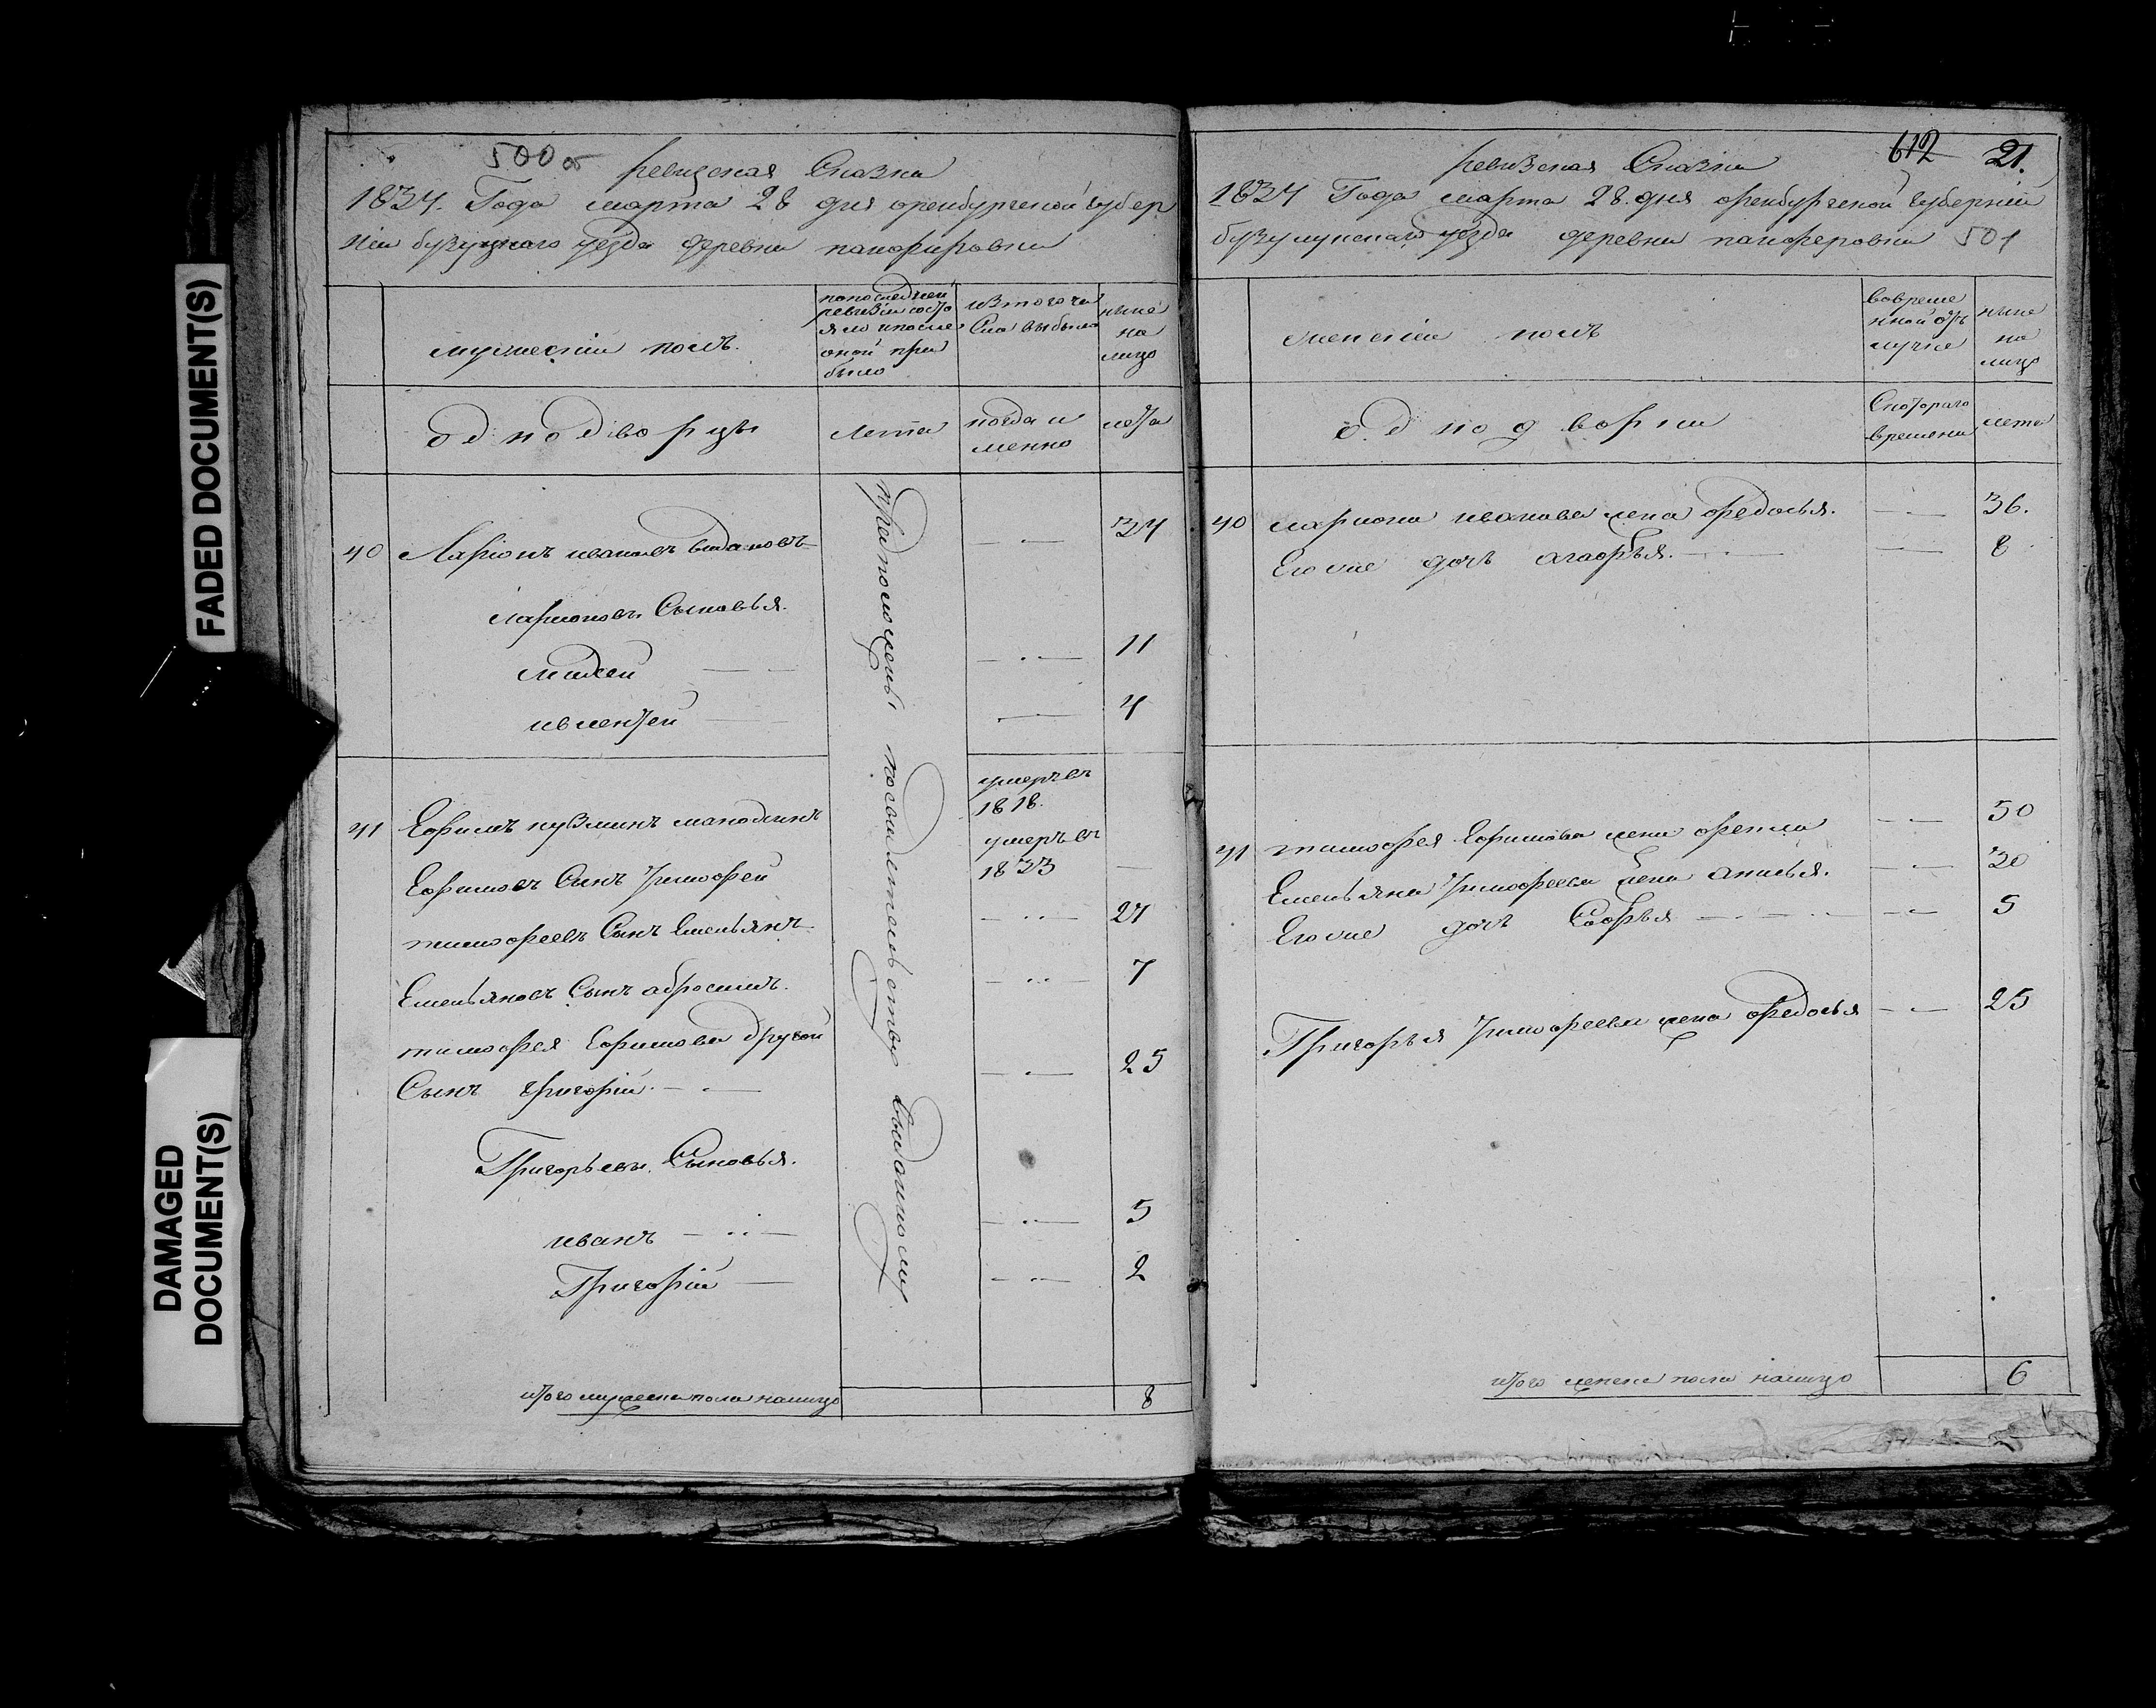 FADED DOCUMENT(S)
DAMAGED
DOCUMENT(S)
500 об
ревизская Сказка
1834. Года марта 28 дня оренбургской губер
ніи бузулуцкаго уезда деревни панфировки
мужескій полъ.
попоследней
ревизіи состо
яло ипосле
оной при
было
изтого чи
сла выбыло
ныне
на
лицо
однодворцы
Лета
когда и
менно
лета
40 Ларіонъ ивановъ 34
ларионовы Сыновья.
михей 11
ивлентей 4
41 Ефимъ кузминъ
умеръ въ
1818.
Ефимовъ Сынъ Тимофей
умеръ въ
1833
тимофеевъ Сынъ Емельянъ 27
Емельяновъ Сынъ абросимъ. 7
тимофея Ефимова другой
Сынъ григорій. 25
Григорьевы Сыновья.
иванъ 5
Григорій 2
предположены посвидетельству
итого мужеска пола налицо 8
612 21.
ревизская Сказка
1834 Года марта 28. дня оренбургской губерніи
бузулукскаго уезда деревни панферовки 501
женскій полъ
вовреме
нной отъ
лучке
ныне
на
лицо
однодворки
Скотораго
времени
лета
40 лариона иванова жена федосья. 36.
Егоже дочь агафья. 8
41 тимофея Ефимова жена фекла 50
Емельяна Тимофеева жена анисья. 30
Егоже дочь Софья 5
Григорья Тимофеева жена федосья 25
итого женска пола налицо 6